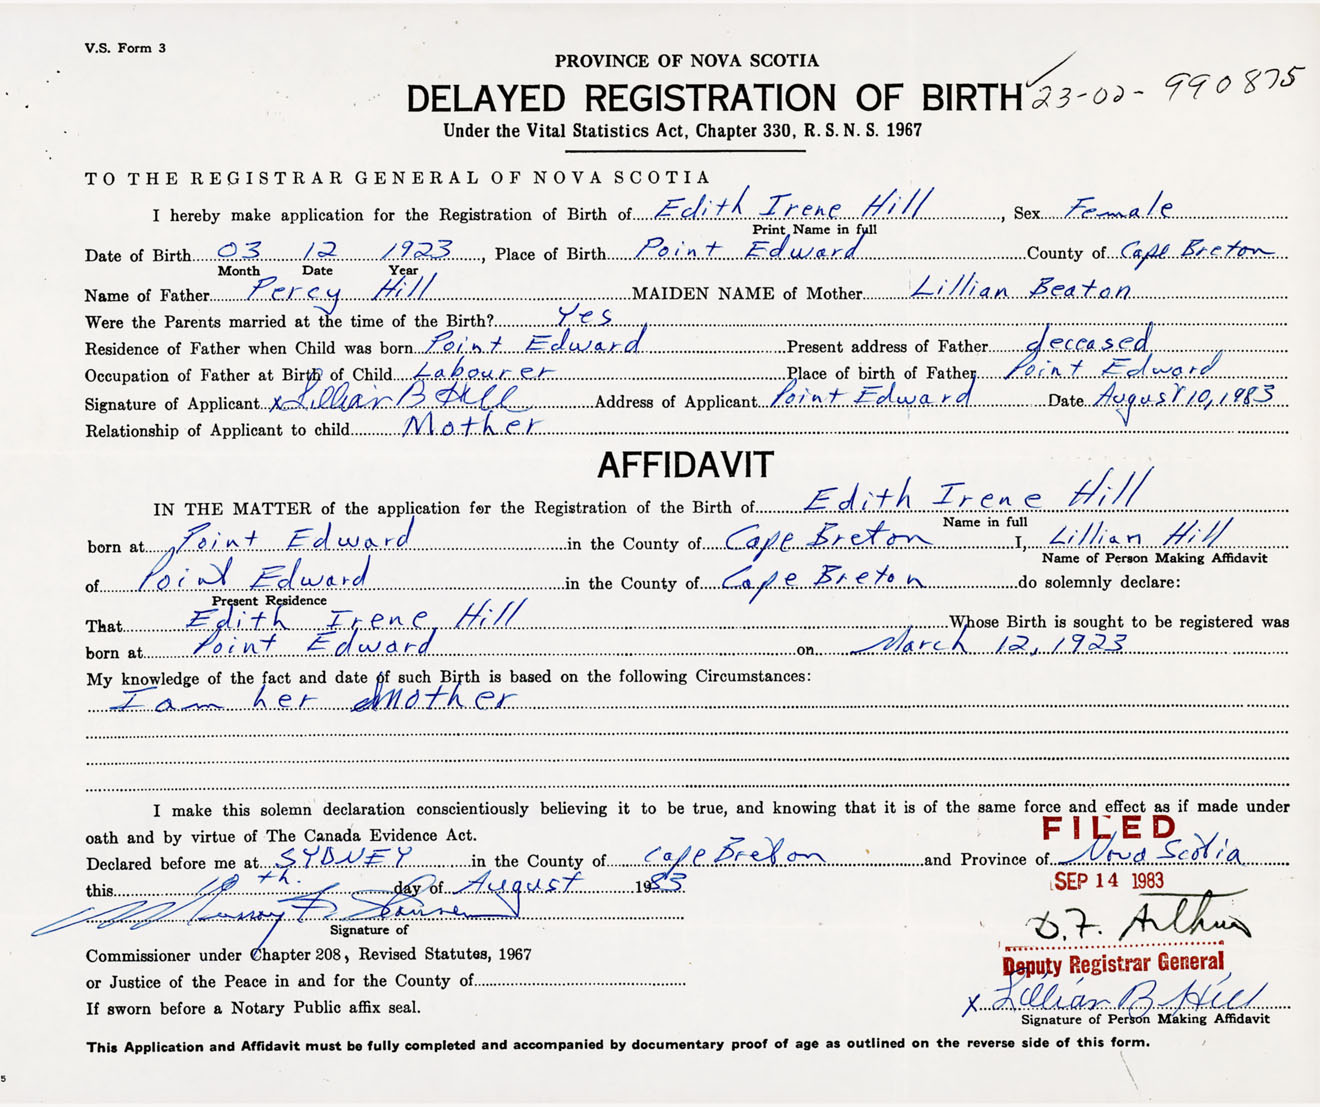 V.S. Form 3
PROVINCE OF NOVA SCOTIA
DELAYED REGISTRATION OF BIRTH 23-02-990875
Under the Vital Statistics Act, Chapter 330, R. S. N. S. 1967
TO THE REGISTRAR GENERAL OF NOVA SCOTIA
I hereby make application for the Registration of Birth of Edith Irene Hill, Sex Female
Print Name in full
Date of Birth 03 12 1923, Place of Birth Point Edward County of Cape Breton
Month Date Year
Name of Father Percy Hill MAIDEN NAME of Mother Lillian Beaton
Were the Parents married at the time of the Birth? Yes
Residence of Father when Child was born Point Edward Present address of Father deceased
Occupation of Father at Birth of Child Labourer Place of birth of Father Point Edward
Signature of Applicant x Lillian B Hill Address of Applicant Point Edward Date August 10, 1983
Relationship of Applicant to child Mother
AFFIDAVIT
IN THE MATTER of the application for the Registration of the Birth of Edith Irene Hill
Name in full
born at Point Edward in the County of Cape Breton I, Lillian Hill
Name of Person Making Affidavit
of Point Edward in the County of Cape Breton do solemnly declare:
Present Residence
That Edith Irene Hill Whose Birth is sought to be registered was
born at Point Edward on March 12, 1923
My knowledge of the fact and date of such Birth is based on the following Circumstances:
I am her Mother
I make this solemn declaration conscientiously believing it to be true, and knowing that it is of the same force and effect as if made under
oath and by virtue of The Canada Evidence Act.
FILED
Declared before me at SYDNEY in the County of Cape Breton and Province of Nova Scotia
this 10th. day of August 1983
SEP 14 1983
D. F. Arthur
Signature of
Commissioner under Chapter 208, Revised Statutes, 1967
Deputy Registrar General
or Justice of the Peace in and for the County of
x Lillian B Hill
If sworn before a Notary Public affix seal.
Signature of Person Making Affidavit
This Application and Affidavit must be fully completed and accompanied by documentary proof of age as outlined on the reverse side of this form.
5